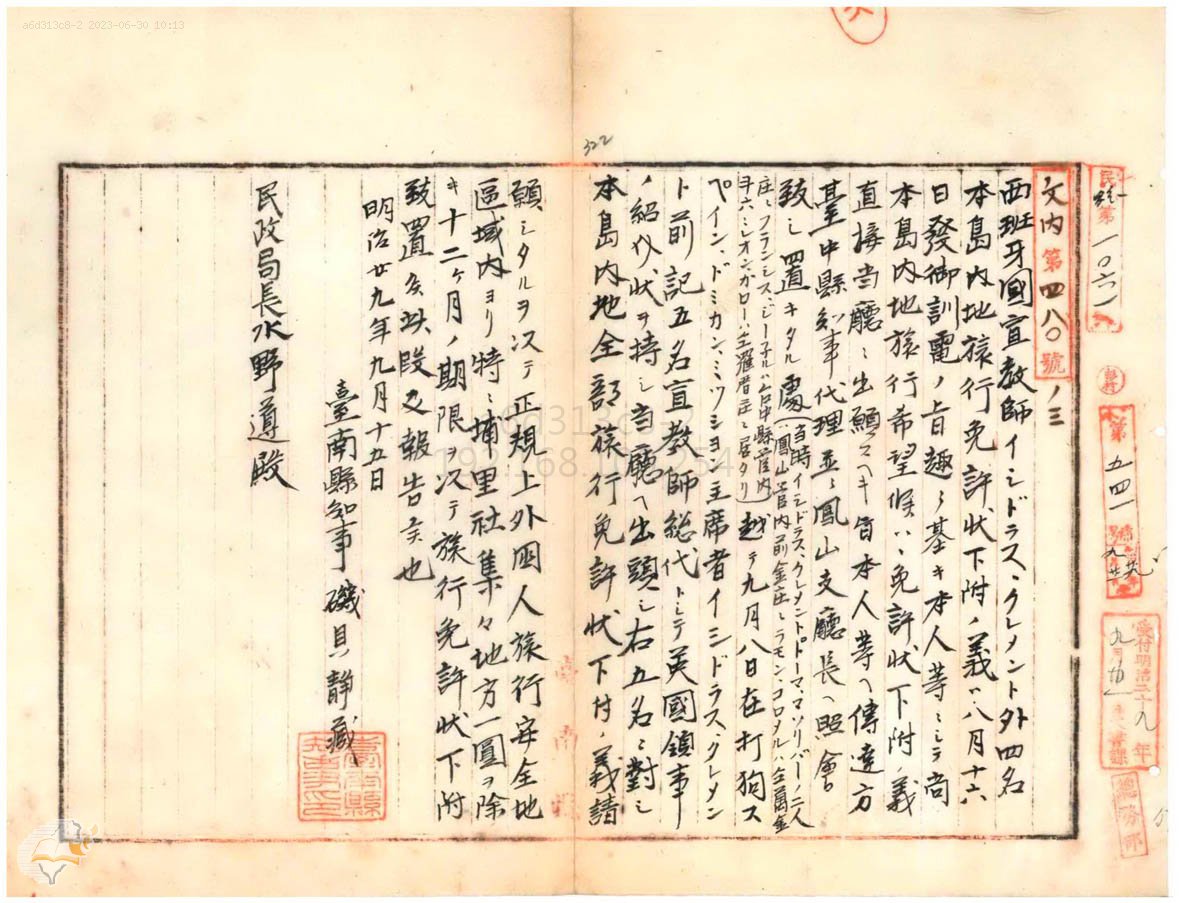 a6d313c8-2 2023-06-30 10:13
322
民総第一〇六一
第五四一號
受付明治二十九年
九月
総務部
文内第四八〇號ノ三
西班牙國宣教師イシドラス、クレメント外四名
本島内地旅行免許状下附ノ義ハ八月十六
日發御訓電ノ旨趣ニ基キ本人等ニシテ尚
本島内地旅行希望候ハヽ免許状下附ノ義
直接当廳ニ出願スヘキ旨本人等ヘ傳達方
臺中縣知事代理並ニ鳳山支廳長ヘ照會
致シ置キタル處(当時イシドラス、クレメント、トーマ、マソリバーノ二人
ハ鳳山管内前金庄ニラモン、コロメルハ仝萬金
庄ニフランシス、ジーネルハ台中縣管内
ヲ六ニシオン、ガローハ仝羅厝庄ニ居タリ)
越テ九月八日在打狗ス
ペイン、ドミカン、ミツシヨン主席者イシドラス、クレメン
ト前記五名宣教師総代トシテ英國領事
ノ紹介状ヲ持シ当廳ヘ出頭シ右五名ニ對シ
本島内地全部旅行免許状下付ノ義請
願シタルヲ以テ正規上外国人旅行安全地
區域内ヨリ特ニ埔里社集々地方一圓ヲ除
キ十二ヶ月ノ期限ヲ以テ旅行免許状下附
致置候此段及報告候也
明治廿九年九月十五日
臺南縣知事磯貝静藏
民政局長水野遵殿